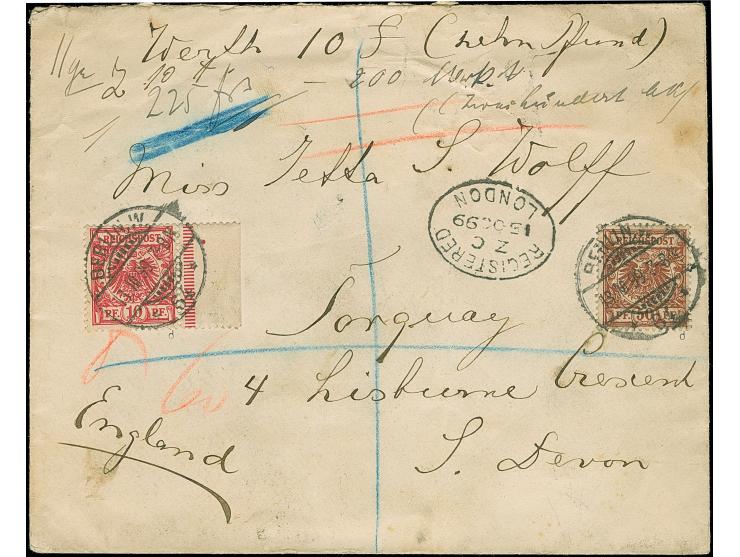 Werth 10 £ (zehn Pfund)
225 frs - 200
(zweihundert Mk)
Miss Jetta S Wolff
REGISTERED
Z C
15 OC 99
LONDON
BERLIN W
REICHSPOST
10 PF. PF.
BERLIN W
REICHSPOST
PF. 50 PF.
Torquay
4 Lisburne Crescent
England
S. Devon